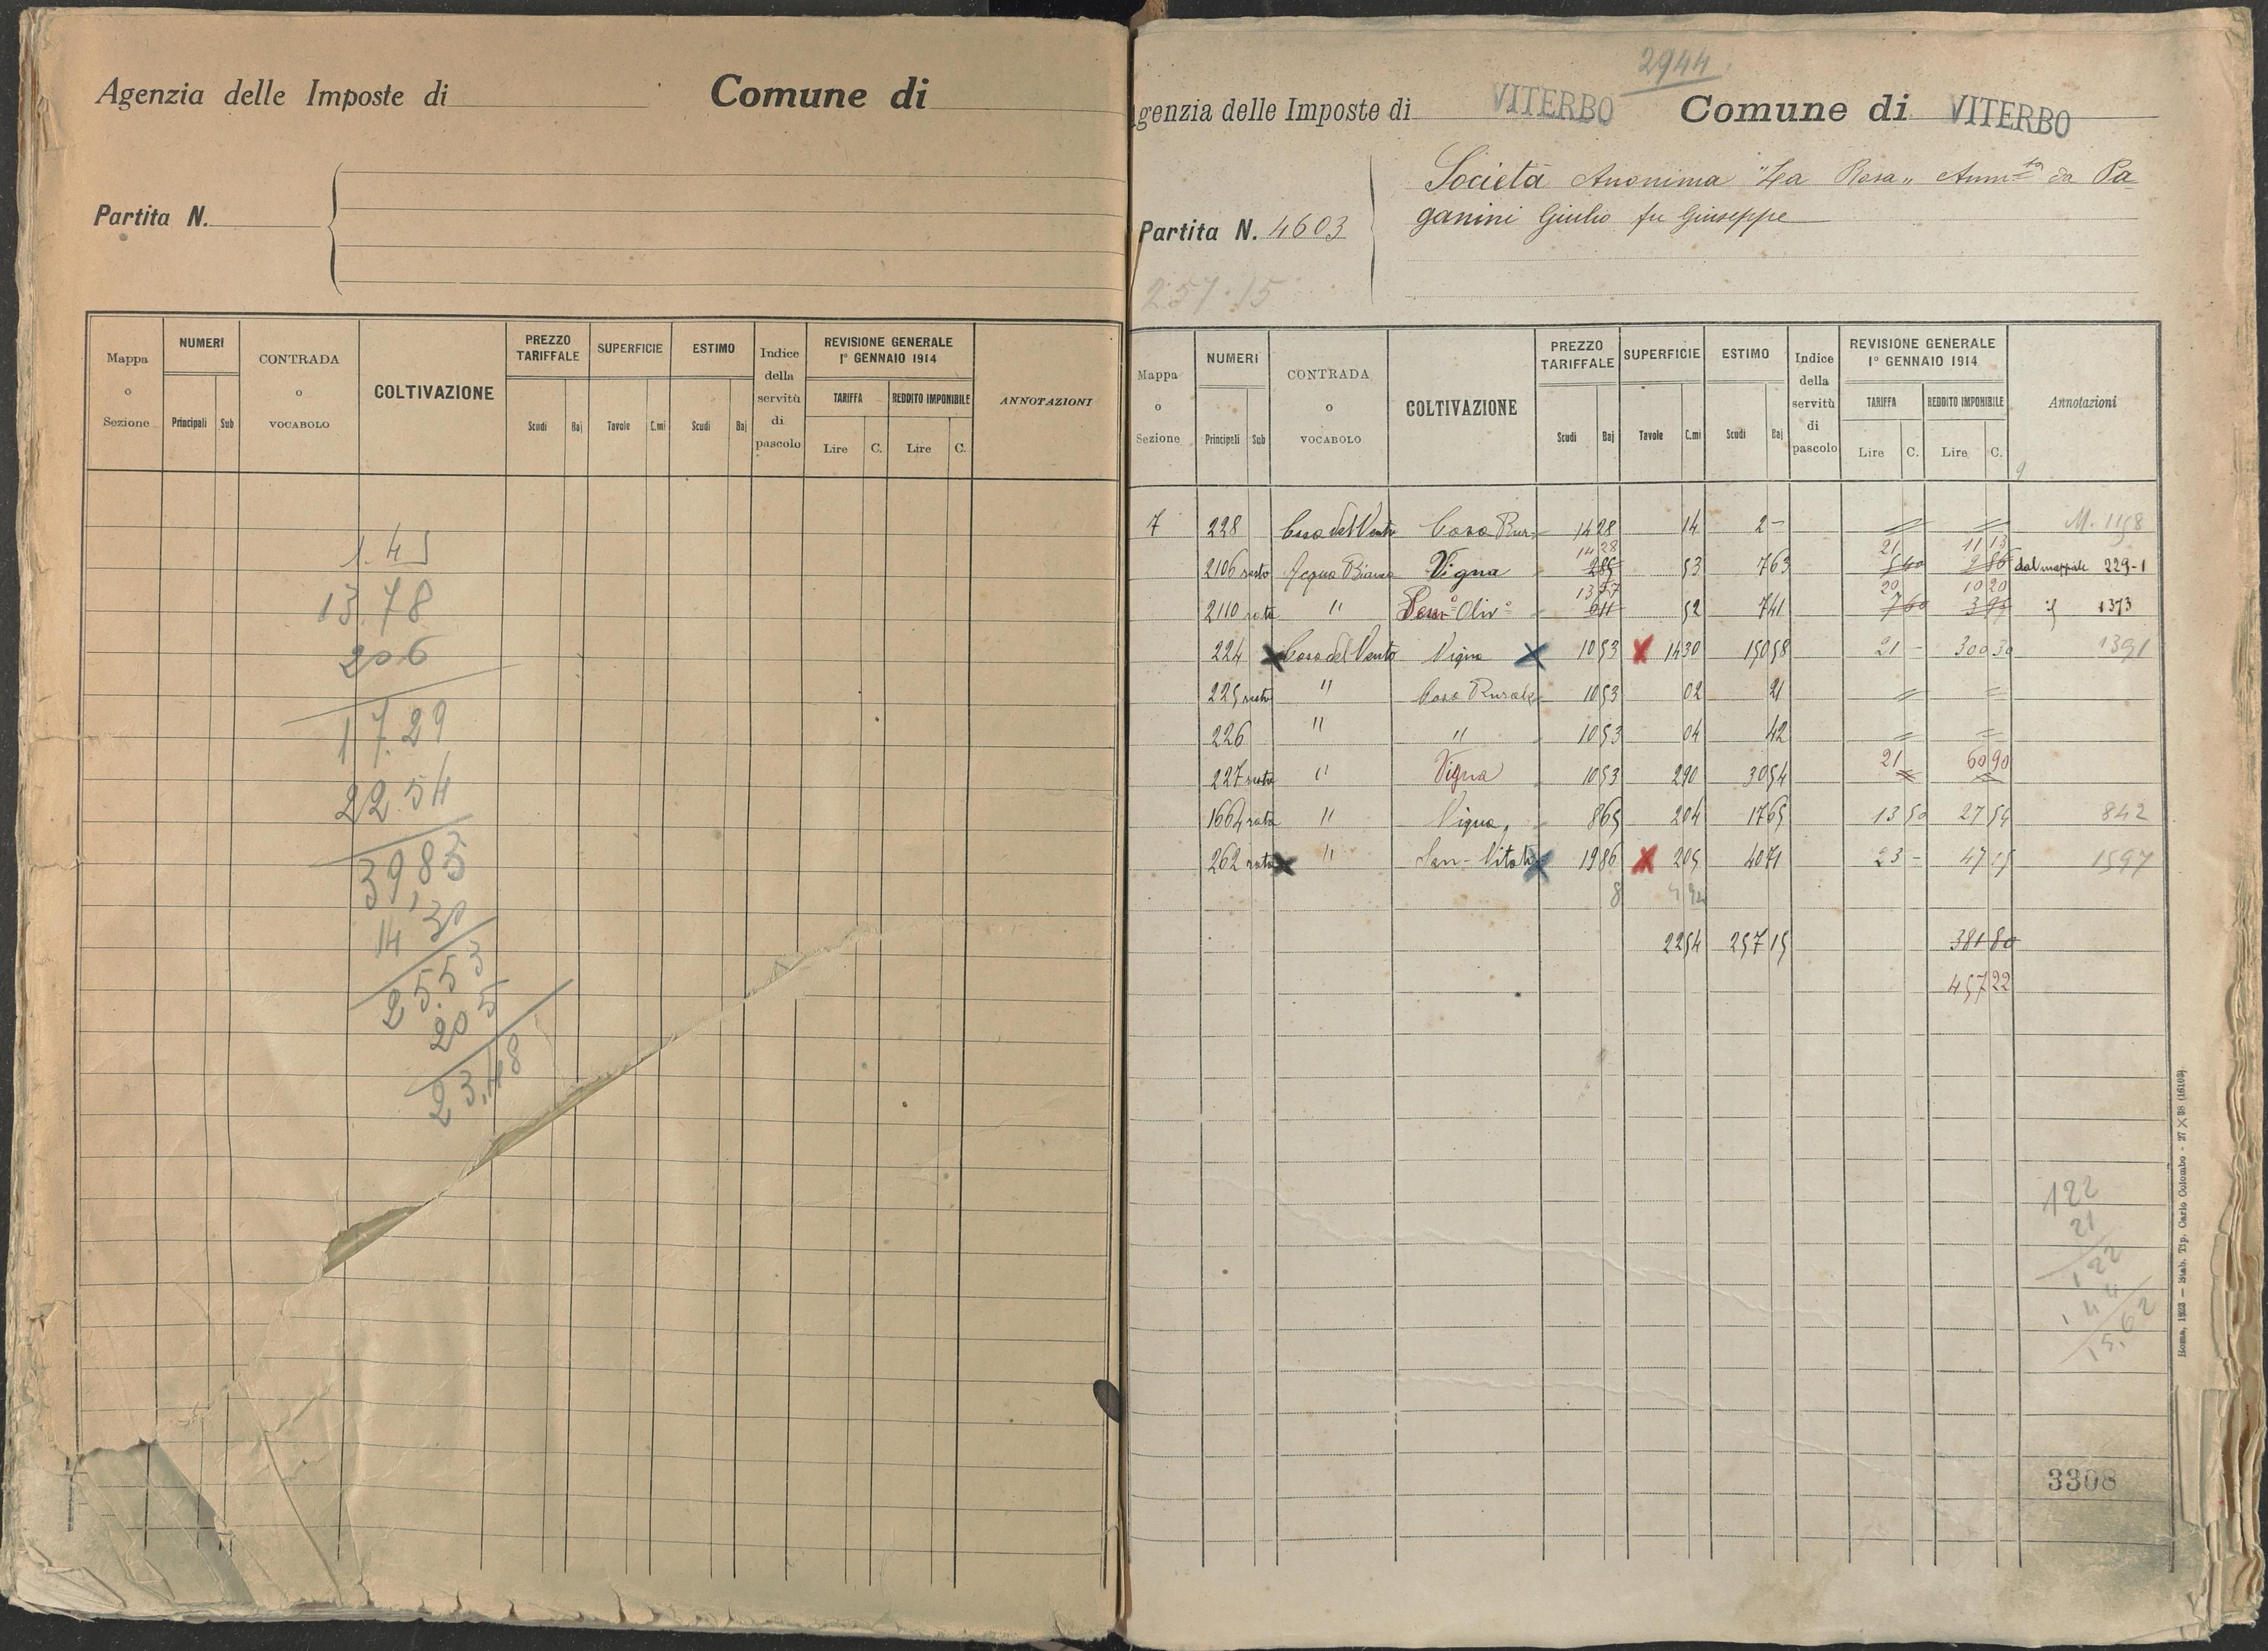 Agenzia delle Imposte di Comune di
Partita N.
Mappa o Sezione
NUMERI
Principali Sub
CONTRADA o VOCABOLO
COLTIVAZIONE
PREZZO TARIFFALE
Scudi Baj
SUPERFICIE
Tavole C.mi
ESTIMO
Scudi Baj
Indice della servitù di pascolo
REVISIONE GENERALE 1° GENNAIO 1914
TARIFFA REDDITO IMPONIBILE
Lire C. Lire C.
ANNOTAZIONI
1.45
13.78
206
17.29
22.54
39,83
14,30
25.53
205
23,48
2944
genzia delle Imposte di VITERBO Comune di VITERBO
Società Anonima "La Rosa" Amm.ta da Pa
ganini Giulio fu Giuseppe
Partita N. 4603
257.15
Mappa o Sezione
NUMERI
Principali Sub
CONTRADA o VOCABOLO
COLTIVAZIONE
PREZZO TARIFFALE
Scudi Baj
SUPERFICIE
Tavole C.mi
ESTIMO
Scudi Baj
Indice della servitù di pascolo
REVISIONE GENERALE 1° GENNAIO 1914
TARIFFA REDDITO IMPONIBILE
Lire C. Lire C.
Annotazioni
7 228 Casa del Vento Casa Rur 14 28 14 2 - M. 1158
14 28 21 11 13
2106 resto Acqua Bianca Vigna 285 53 7 63 5 40 2 86 dal mappale 229-1
13 57 20 10 20
2110 rata " Sem° Oliv° 611 52 7 41 7 60 3 95 1373
224 Casa del Vento Vigna 10 53 14 30 150 58 21 - 300 30 1391
225 resto " Casa Rurale 10 53 02 21
226 " " 10 53 04 42
227 resto " Vigna 10 53 2 90 30 54 21 60 90
1664 rata " Vigna 8 65 2 04 17 65 13 50 27 54 842
262 rata " Sem-Vitato 19 86 2 05 40 71 23 - 47 15 1597
22 54 257 15 381 80
457 22
122
21
122
144
15,62
3308
Roma, 1923 — Stab. Tip. Carlo Colombo - 27 X 38 (16103)